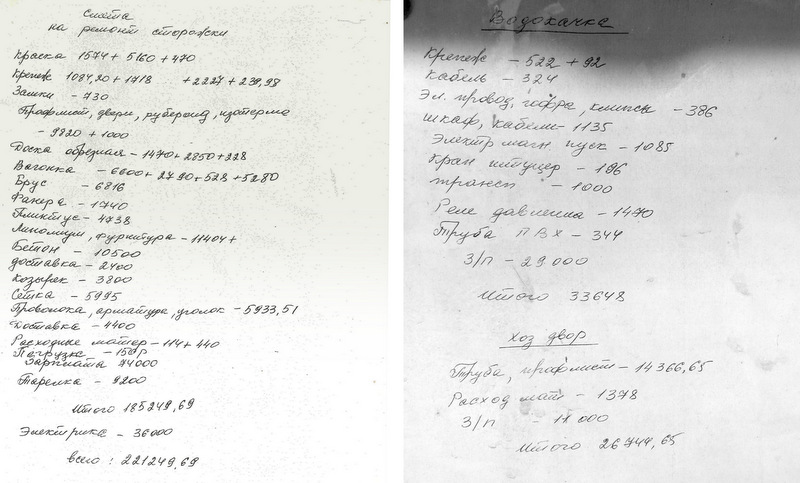 Смета
на ремонт сторожки
Краска 1574 + 5160 + 470
Крепеж 1084,20 + 1718 + 2227 + 239,98
Замки - 730
Профлист, двери, рубероид, изотерма
- 9820 + 1000
Доска обрезная - 1470 + 2850 + 228
Вагонка - 6600 + 2790 + 528 + 5280
Брус - 6816
Фанера - 1740
Плинтус - 4738
Линолиум, фурнитура - 11404 +
Бетон - 10500
доставка - 2400
Козырек - 3800
Сетка - 5995
Проволока, арматура, уголок - 5933,51
Доставка - 4400
Расходные матер - 114 + 440
Погрузка - 150р
Зарплата 74000
Тарелка - 9200
Итого 185249,69
Электрика - 36000
всего : 221249,69
Водокачка
Крепеж - 522 + 92
Кабель - 324
Эл. провод, гофра, клипсы - 386
шкаф, кабели - 1135
Электр магн пуск - 1085
Кран штуцер - 196
трансп - 1000
Реле давления - 1470
Труба ПВХ - 344
З/п - 29000
Итого 33648
хоз двор
Труба, профлист - 14366,65
Расход мат - 1378
З/п - 11000
Итого 26744,65